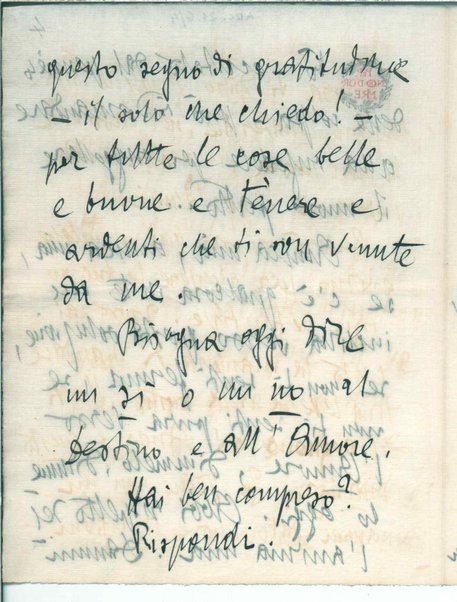 questo segno di gratitudine
– il solo che chiedo! –
per tutte le cose belle
e buone e tènere e
ardenti che ti son venute
da me.
Bisogna oggi dire
un sì o un no al
Destino e all'Amore.
Hai ben compreso?
Rispondi.